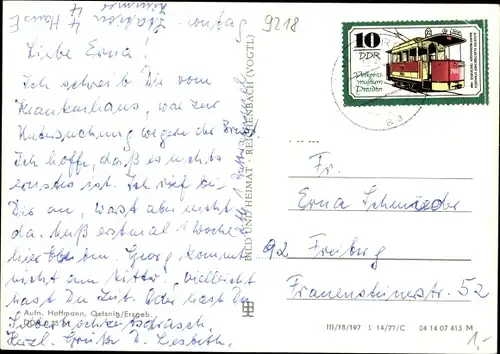 9218
Liebe Erna!
Ich schreibe Dir vom
Krankenhaus, war zur
Untersuchung wegen der Brust.
Ich hoffe, daß es nichts
ernstes ist. Ich rief bei
Dir an, warst aber nicht
da. Muß erstmal 1 Woche
hier Georg kommt
nicht am Mittw. Vielleicht
hast Du Zeit. Oder hast Du
Herzl. Grüße D. Lisbeth
Aufn. Hoffmann, Oelsnitz/Erzgeb.
BILD UND HEIMAT · REICHENBACH (VOGTL)
10
DDR
Verkehrs-
museum
Dresden
Fr.
Erna Schmieder
92 Freiberg
Frauensteinerstr. 52
III/18/197 L 14/77/C 04 14 07 413 M
1,-